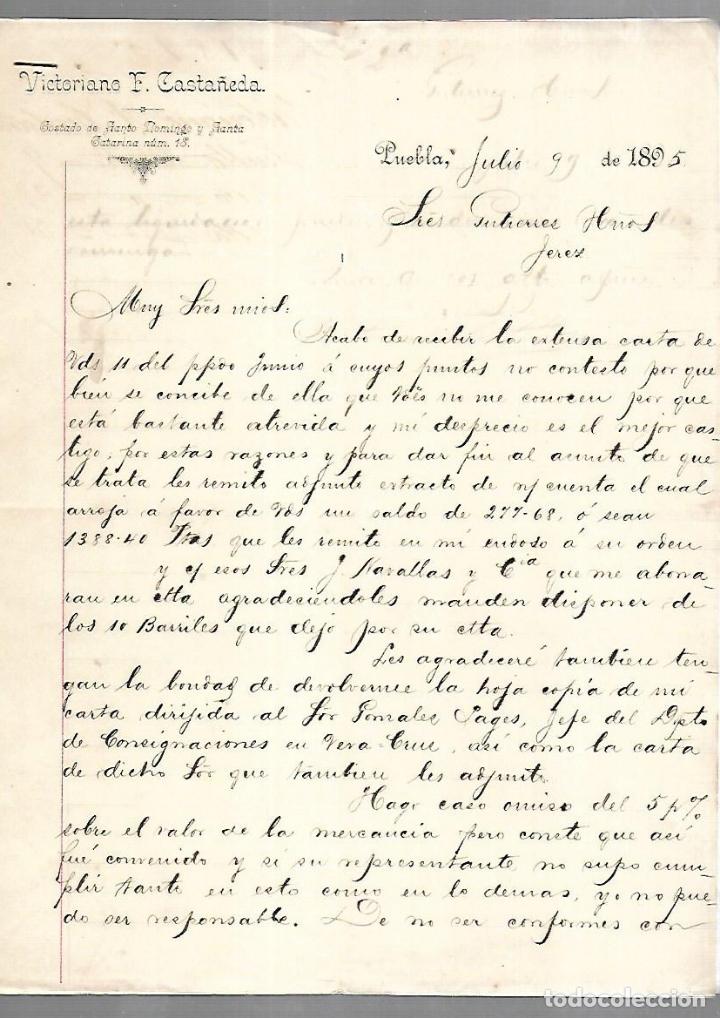 Victoriano F. Castañeda.
Costado de Santo Domingo y Santa
Catarina núm. 13.
Puebla, Julio 9 de 1895
Sres Gutierrez Hnos
Jerez
Muy Sres mios:
Acabo de recibir la extensa carta de
Vds 11 del ppdo Junio á cuyos puntos no contesto por que
bien se concibe de ella que Vdes no me conocen por que
está bastante atrevida y mi desprecio es el mejor cas-
tigo, por estas razones y para dar fin al asunto de que
se trata les remito adjunto extracto de n/ cuenta el cual
arroja á favor de Vds un saldo de 277-68, ó sean
1388-40 Ptas que les remito en mi endoso á su orden
y c/ esos Sres J. Navallas y Cia que me abona-
ran en cta agradeciendoles manden disponer de
los 10 Barriles que dejo por su cta.
Les agradeceré tambien ten-
gan la bondad de devolverme la hoja copia de mi
carta dirijida al Sor Gonzalez Pages, Jefe del Dpto
de Consignaciones en Vera-Cruz, asi como la carta
de dicho Sor que tambien les adjunte.
Hago caso omiso del 5 p%
sobre el valor de la mercancia pero conste que asi
fué convenido y si su representante no supo cum-
plir tanto en esto como en lo demas, yo no pue-
do ser responsable. De no ser conformes con
todocoleccion.net